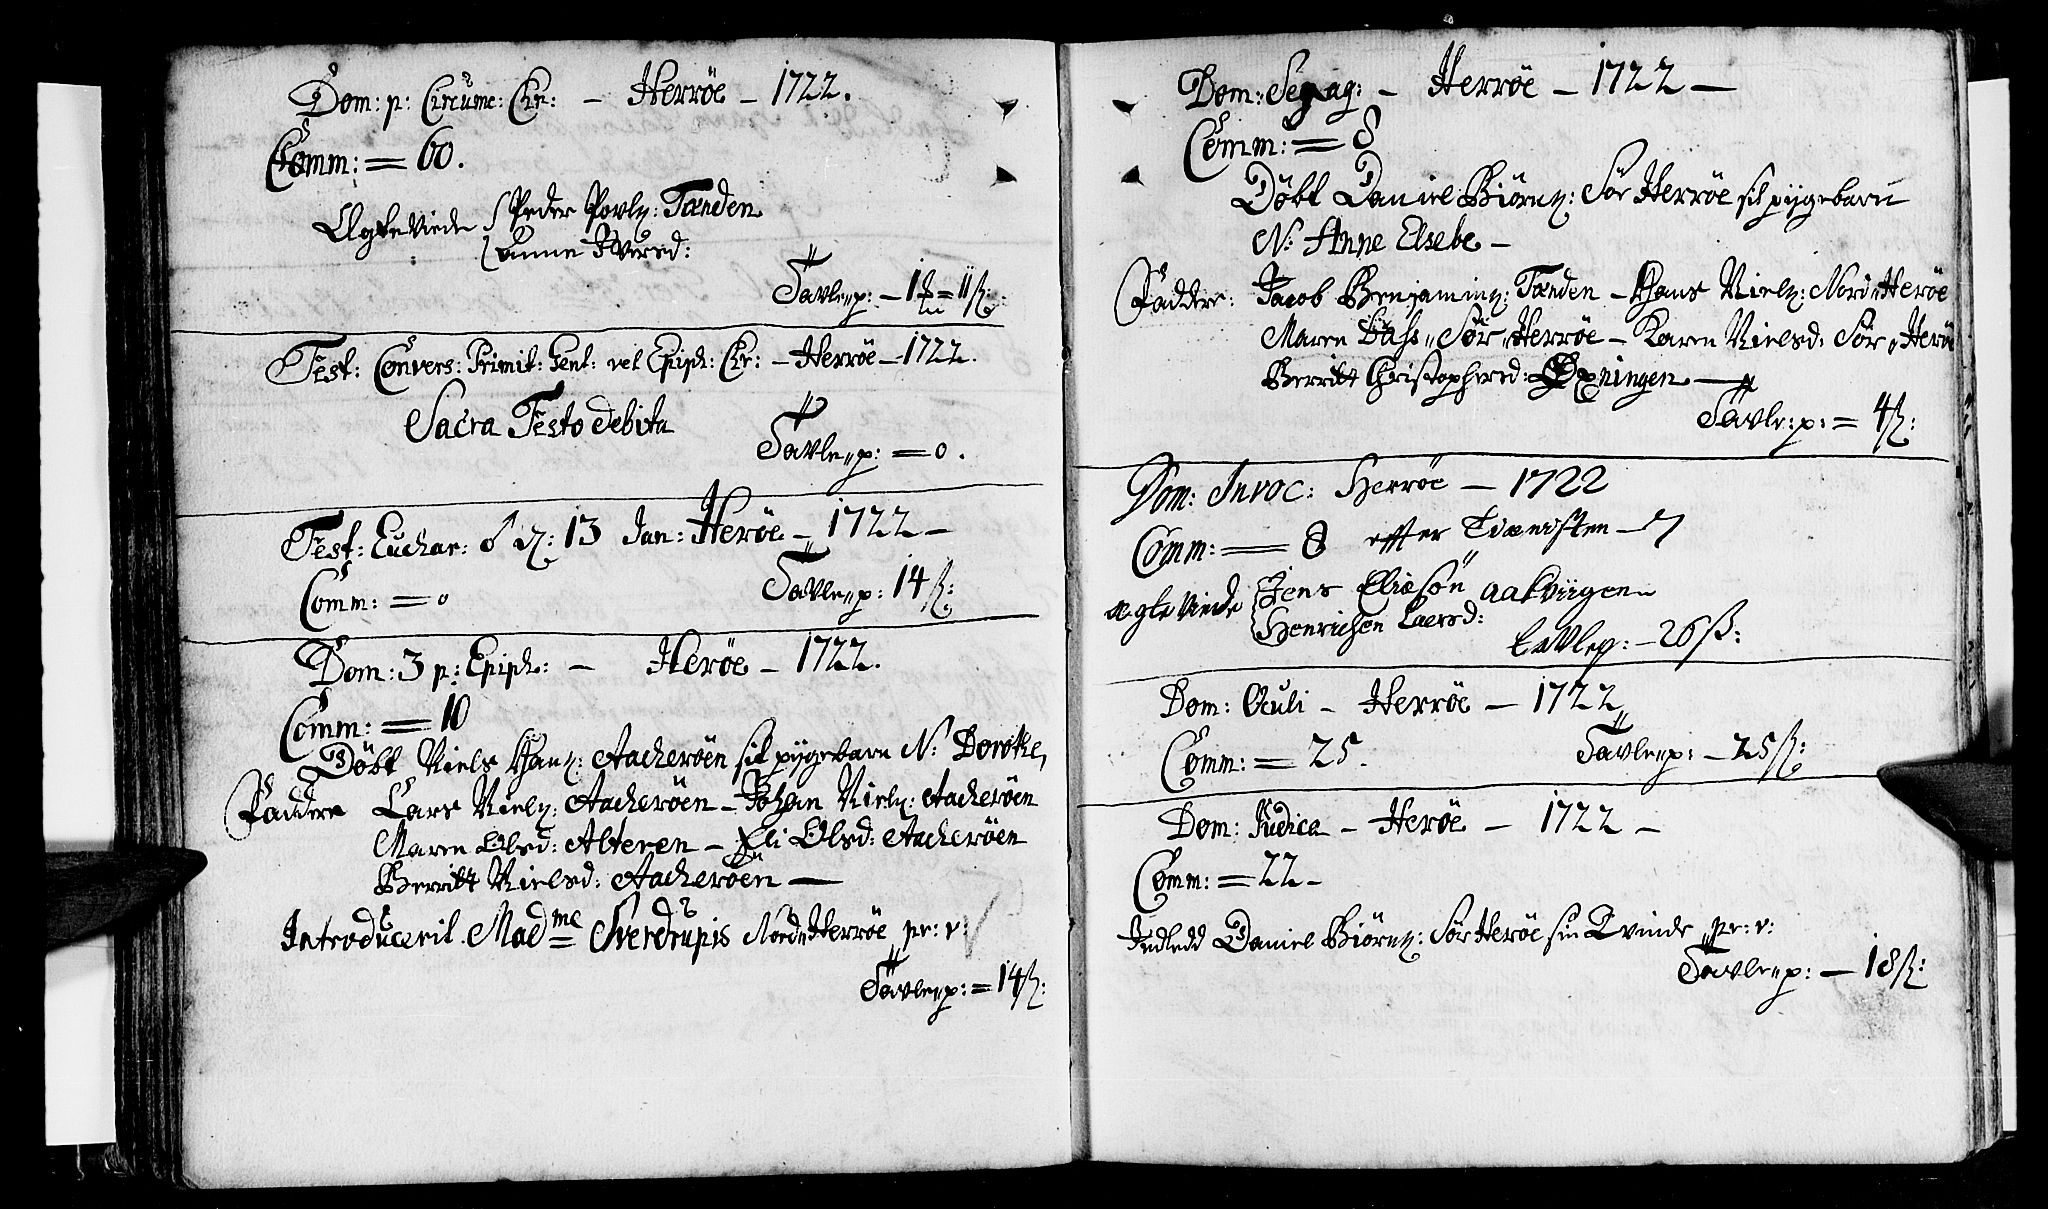 Dom: p: Circumc: Chr: – Herröe – 1722.
Comm: = 60.
Ægte Viede Peder Povlss: Tænden
Anne Iversd:
Tavle„p: – 1 = 11 ß:
Fest: Convers: Primit: Gent: vel Epiph: Chr: – Herröe – 1722.
Sacra Festo debita
Tavle„p: = 0.
Fest: Euchar: ♂ d: 13 Jan: Herröe – 1722 –
Comm: = 0
Tavle„p: 14 ß:
Dom: 3 p: Epiph: – Heröe – 1722.
Comm: = 10
Döbt Niels Hanss: Aacheröen sit pygebarn N: Dorothe,
Faddere Lars Nielss: Aacheröen – Johan Nielss: Aacheröen
Maren Olsd: Alteren – Eli Olsd: Aacheröen
Berritt Nielsd: Aacheröen –
Introduceril. Madme Sverdrupis Nord„Herröe pr: v:
Tavle„p: = 14 ß:
Dom: Sexag: – Herröe – 1722 –
Comm: = 8
Döbt Daniel Biörnss: Sör Herröe sit pygebarn
N: Anne Elsebe –
Faddere: Jacob Benjaminss: Tænden – Hans Nielss: Nord„Heröe
Maren Dass„ Sör„Herröe – Karen Nielsd: Sör„Heröe
Berritt Christophersd: Öxningen –
Tavle:p: = 4 ß:
Dom: Invoc: Herröe – 1722
Comm: = 8 effter Tienisten – 7
ægte Viede Jens Eliesön aakviigen
Henrichen Laersd:
tavlep: – 26 ß:
Dom: Oculi – Herröe – 1722
Comm: = 25.
Tavle„p: – 25 ß:
Dom: Judica – Heröe – 1722 –
Comm: = 22 –
Indledd Daniel Biörnss: Sör Heröe sin Qvinde „pr: v:
Tavle„p: – 18 ß: